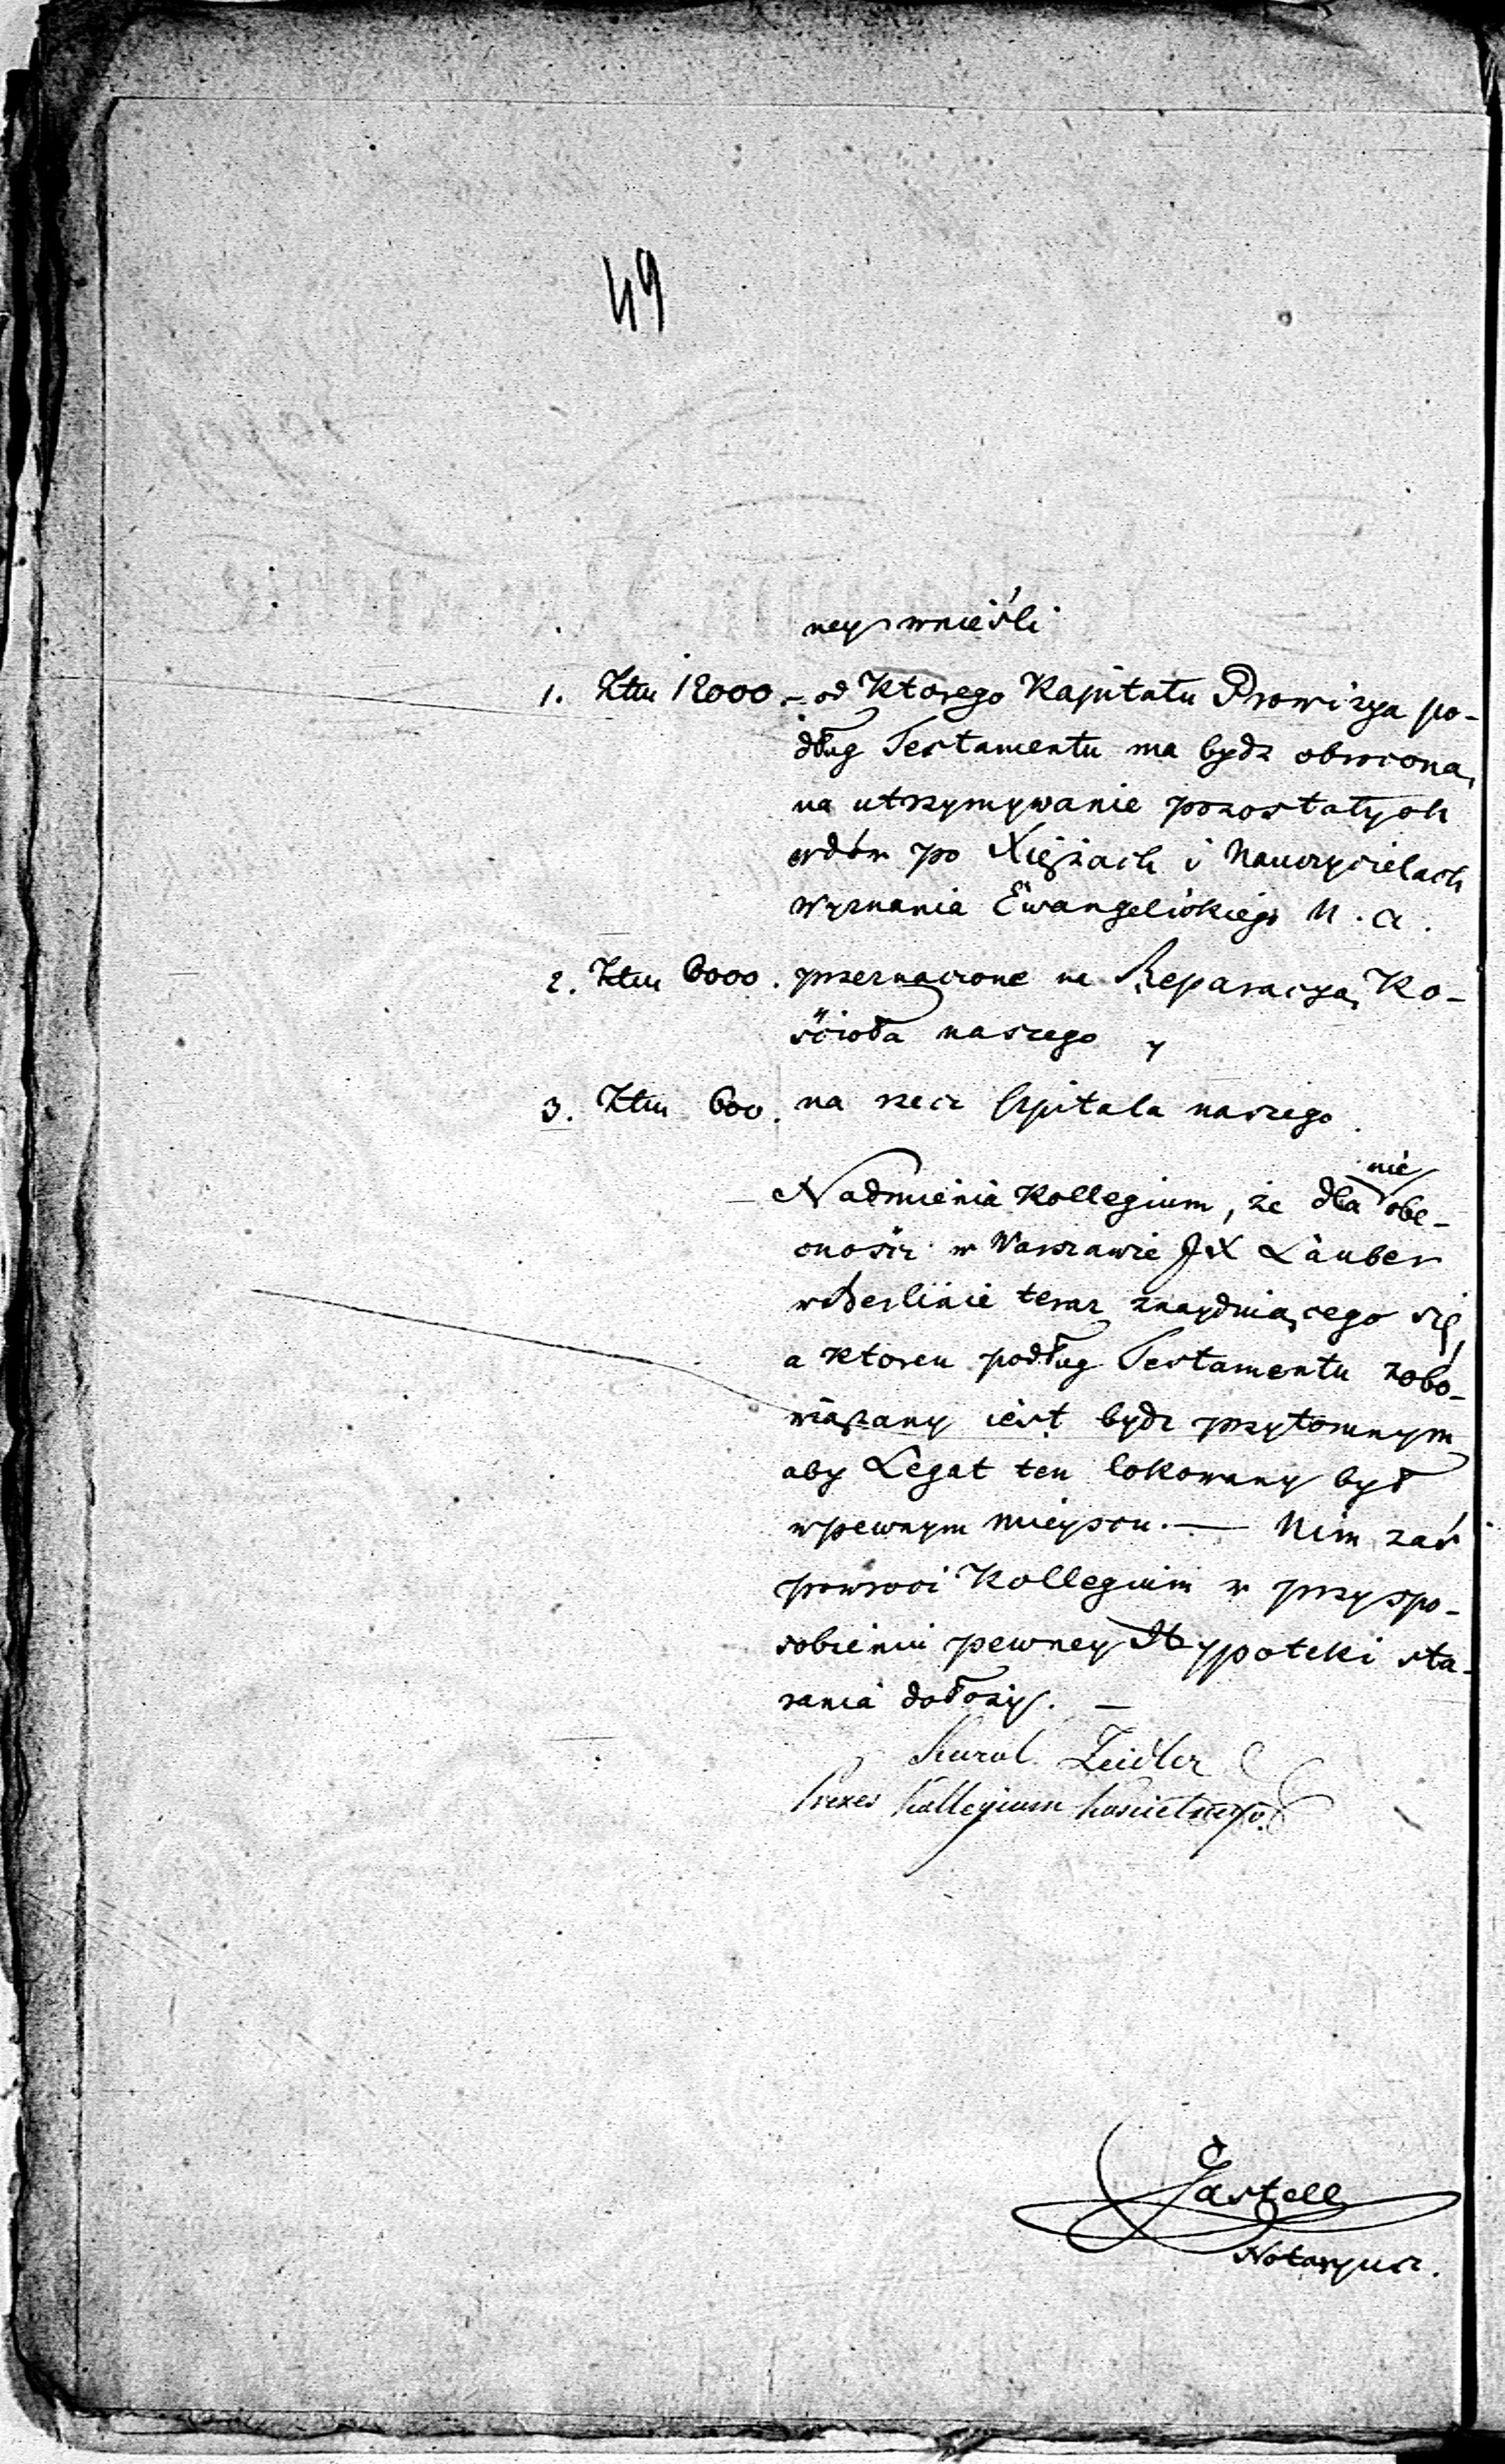 49
ney wnieśli
1. Ztu 12000. – od Ktorego Kapitału Prowizya po-
dług Testamentu ma bydz obrocona,
na utrzymywanie pozostałych
wdów po Xiężach i Nauczycielach
wyznania Ewangelickiego N. A.
2. Ztu 6000. przeznaczone na Reparacyą Ko-
ścioła naszego y
3. Ztu 600. na rzecz Szpitala naszego.
Nadmienia Kollegium, że dla nie obe-
cności w Warszawie JX Lauber
w Berlinie teraz znayduiącego się,
a ktoren podług Testamentu zobo-
wiązany iest bydz przytomnym
aby Legat ten lokowany był
w pewnym mieyscu. — Nim zaś
powroci Kollegium w przyspo-
sobieniu pewney Hypoteki sta-
rania dołoży. —
Karol Zeidler
Prezes Kollegium koscielnego.
Gastell
Notaryusz.